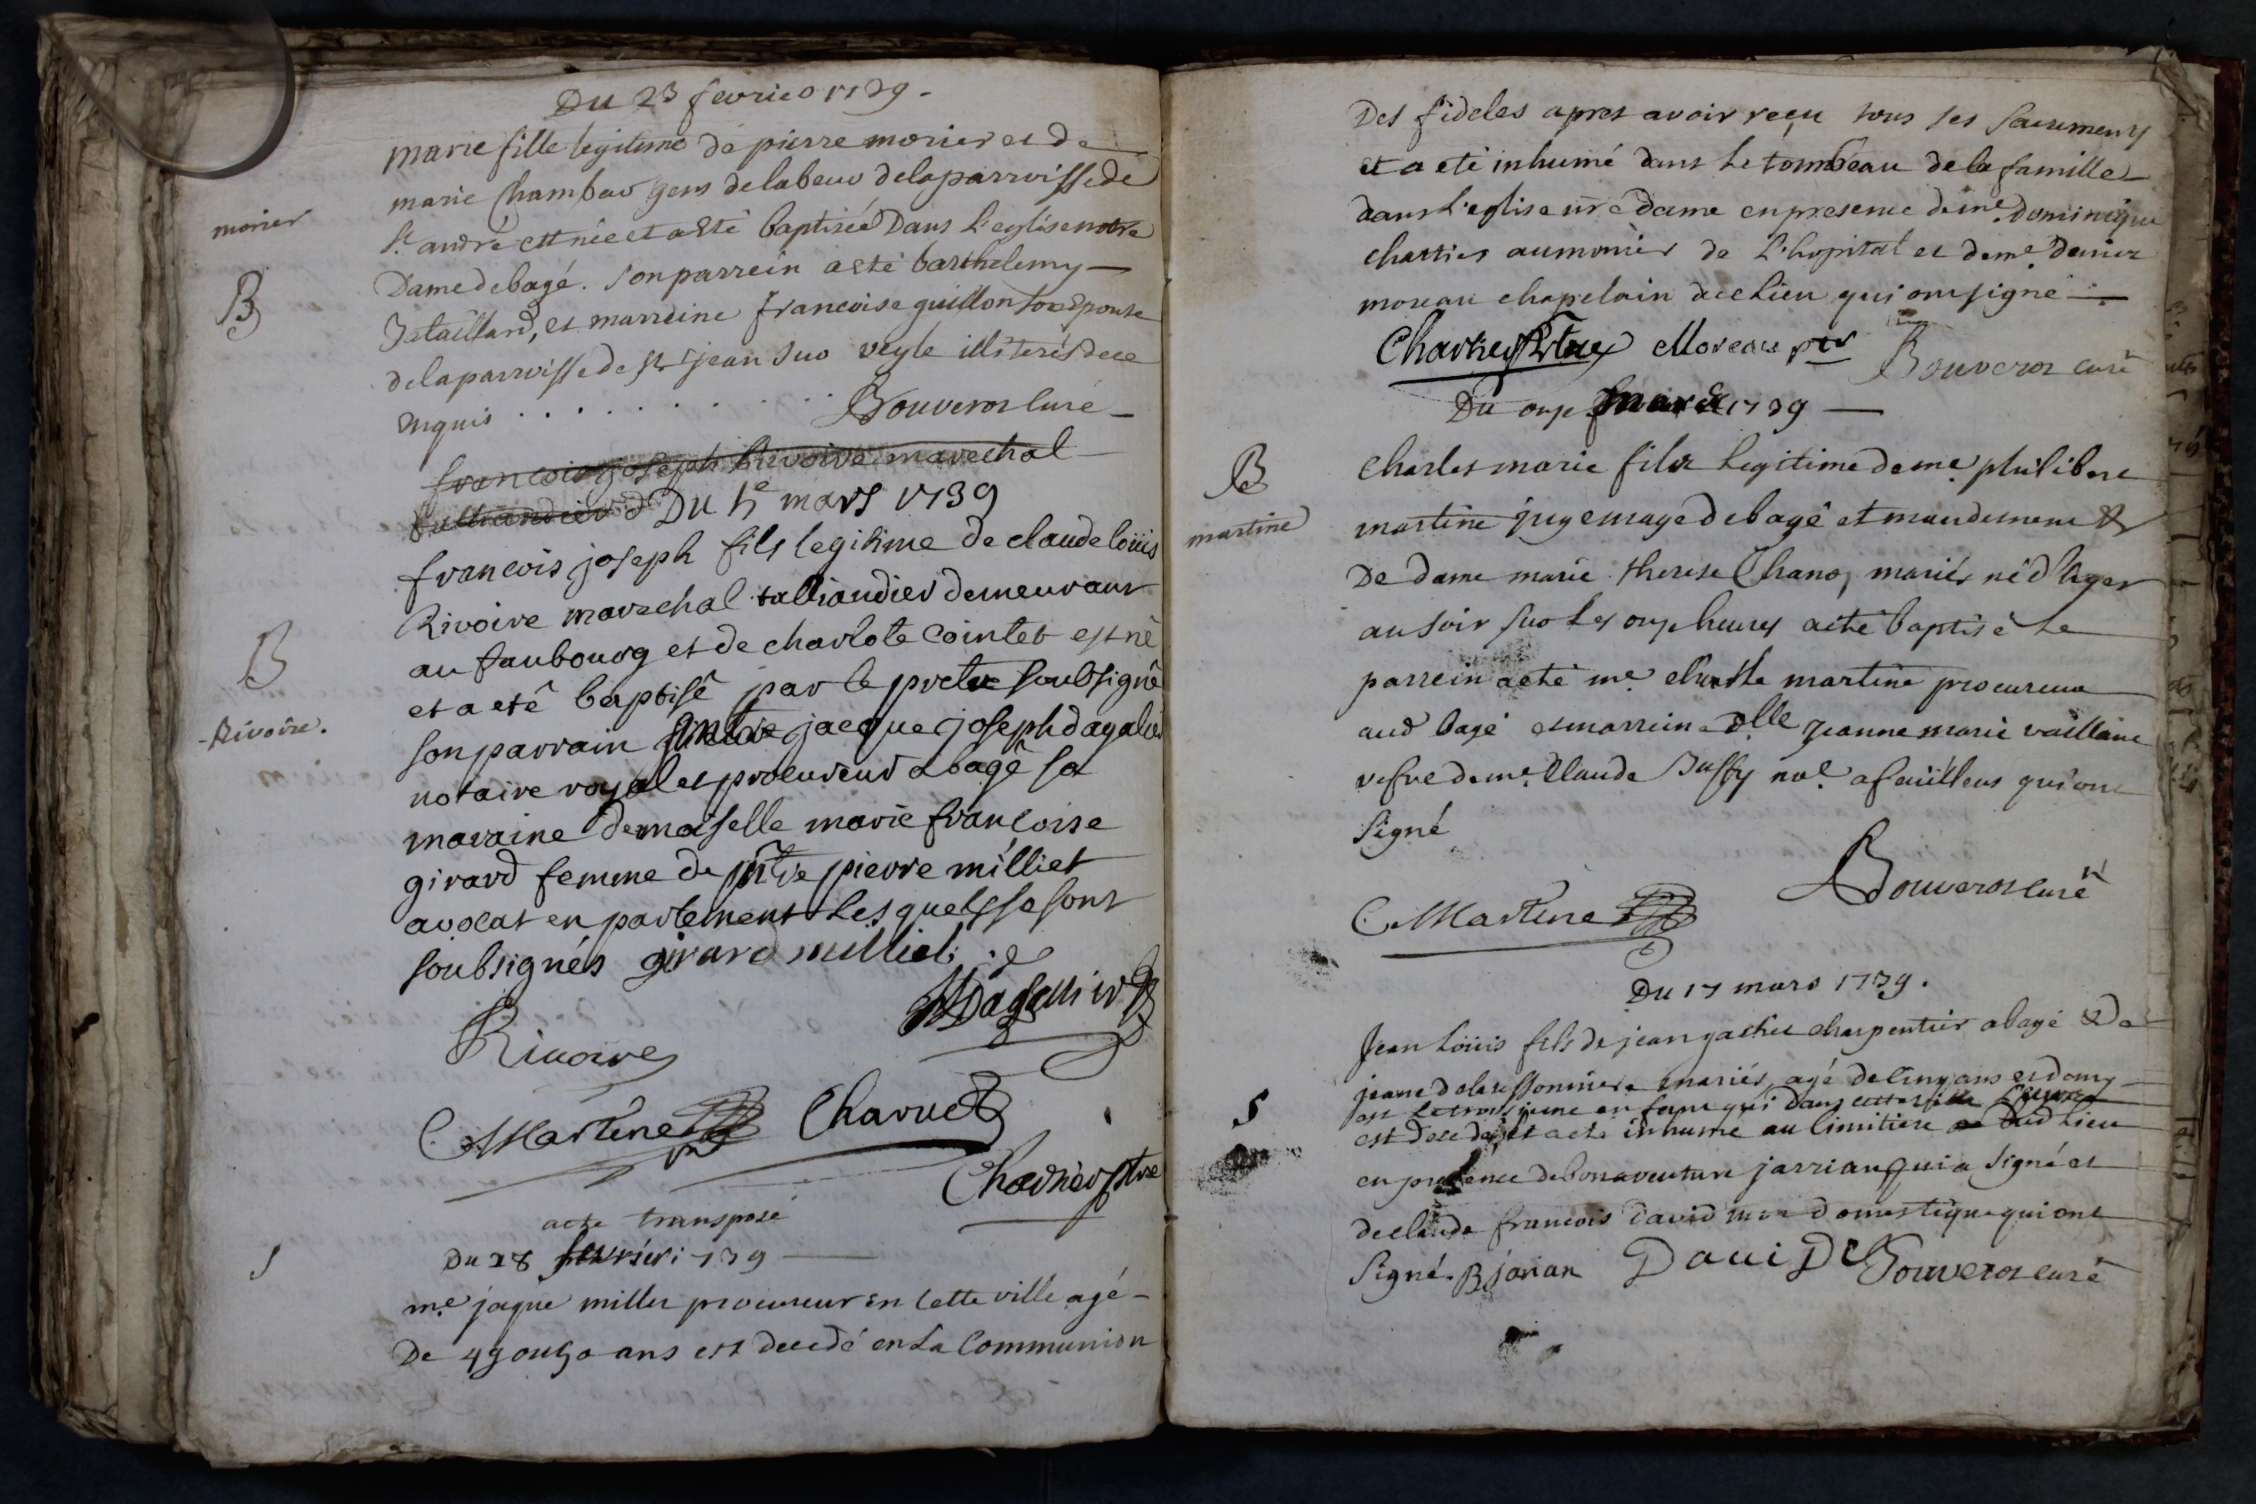 Du 23 fevrier 1739.
marie fille legitime de pierre morier et de
marie Chambar gens de labeur de la parroisse de
morier
St andré est née et a esté baptisée Dans L'eglise notre
Dame de bagé. Son parrein a esté barthelemy
B
Jetaillard, et marreine francoise guillon son epouse
de la parroisse de st jean sur veyle illiterés de ce
enquis . . . . . . . . . Bouveron curé
francois joseph Rivoire marechal
talliandier d Du 5e mars 1739
francois joseph fils legitime de claude loüis
Rivoire marechal talliandier demeurant
au faubourg et de charlote Cointet est né
B
et a eté baptisé par le pretre soubsigné
Rivoire.
son parrain jacque joseph dagalier
notaire royal et procureur a bagé sa
maraine demoiselle marie françoise
girard femme de pierre milliet
avocat en parlement Lesquels se sont
soubsignés girard milliet
Dagallier
Rivoire
C. Martine Charvet
Charnier ptre
acte transposé
S
Du 28 fevrier 1739
me jaque millet procureur en cette ville agé
De 49 ou 50 ans est decedé en La Communion
Des fideles apres avoir reçu tous ses sacremens
et a eté inhumé dans le tombeau de la famille
dans L'eglise nre Dame en presence de me dominique
aumonier de L'hopital et de me
moreau chapelain de ce Lieu qui ont signé
Moreau ptr Bouveron curé
Du onze mars 1739
B
Charles marie fils Legitime de me philibert
martine
martine juge mage de bagé et mandement &
De dame marie therese Chano, mariés né d'hyer
au soir sur Les onze heures a eté baptisé Le
parrein a eté me martine procureur
aud bagé et marreine Dlle jeanne marie vaillant
vefve de me Claude Buffy nol. a feüillens qui ont
Signé
Bouveron curé
C. Martine
Du 17 mars 1739.
Jean Loüis fils de jean charpentier a bagé & De
jeanne mariés, agé de cinq ans et demy
S
est decedé et a eté inhumé au cimitiere dud Lieu
en presence de bonaventure jarrian qui a signé et
de claude francois david mon domestique qui ont
Signé. B jarian DaviD Bouveron curé